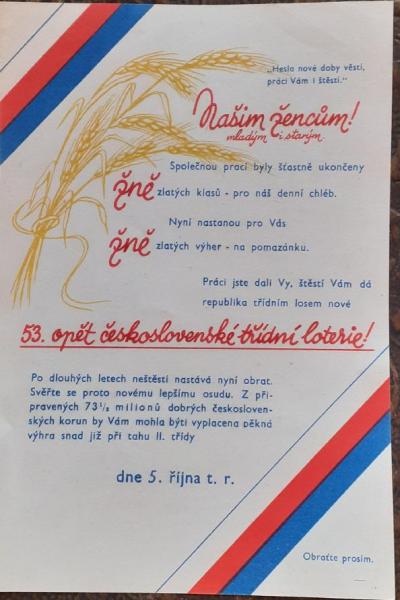 „Heslo nové doby věstí,
práci Vám i štěstí."
Našim žencům!
mladým i starým.
Společnou prací byly šťastně ukončeny
žně zlatých klasů - pro náš denní chléb.
Nyní nastanou pro Vás
žně zlatých výher - na pomazánku.
Práci jste dali Vy, štěstí Vám dá
republika třídním losem nové
53. opět československé třídní loterie!
Po dlouhých letech neštěstí nastává nyní obrat.
Svěřte se proto novému lepšímu osudu. Z při-
pravených 73 1/2 milionů dobrých českosloven-
ských korun by Vám mohla býti vyplacena pěkná
výhra snad již při tahu II. třídy
dne 5. října t. r.
Obraťte prosím.